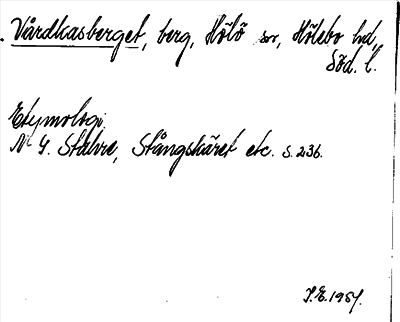 Vårdkasberget, berg, Hölö sn, Hölebo hd,
Söd. l.
Etymologi
N. G. Stahre, Stångskäret etc. s. 236.
I.E. 1957.